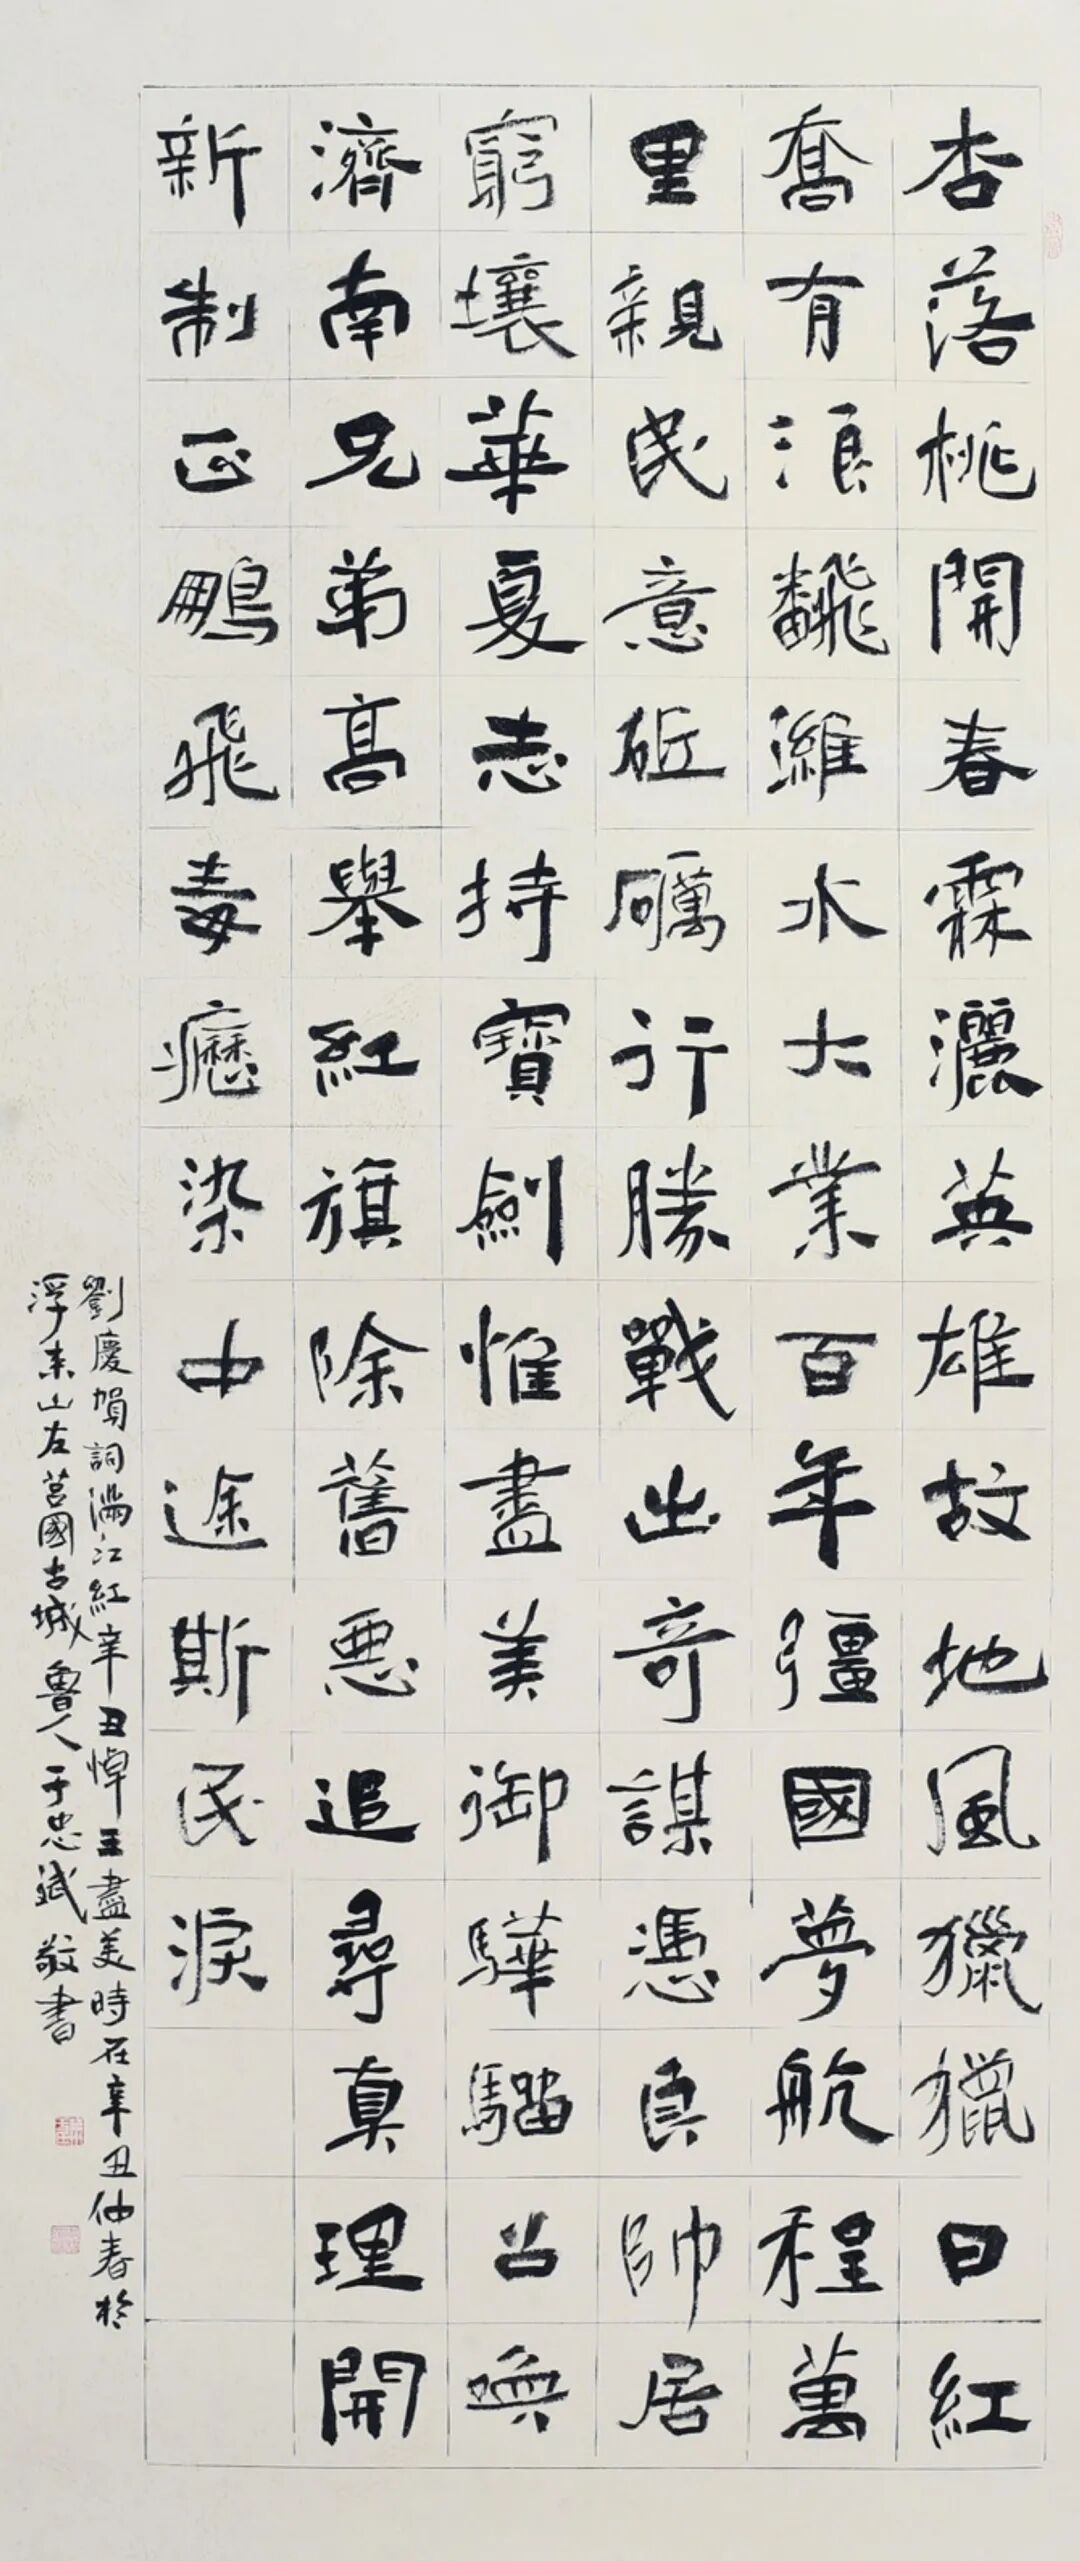 杏落桃開春霖灑英雄故地風獵獵日紅
喬有浪飜濰水大業百年彊國夢航程萬
里親民意砥礪行勝戰出奇謀憑良帥居
窮壤華夏志持寶劍惟盡美御驊騮召喚
濟南兄弟高舉紅旗除舊惡追尋真理開
新制正鵬飛毒癧染中途斯民淚
劉慶賀詞滿江紅辛丑悼王盡美時在辛丑仲春於
浮来山左莒國古城魯人于忠斌敬書